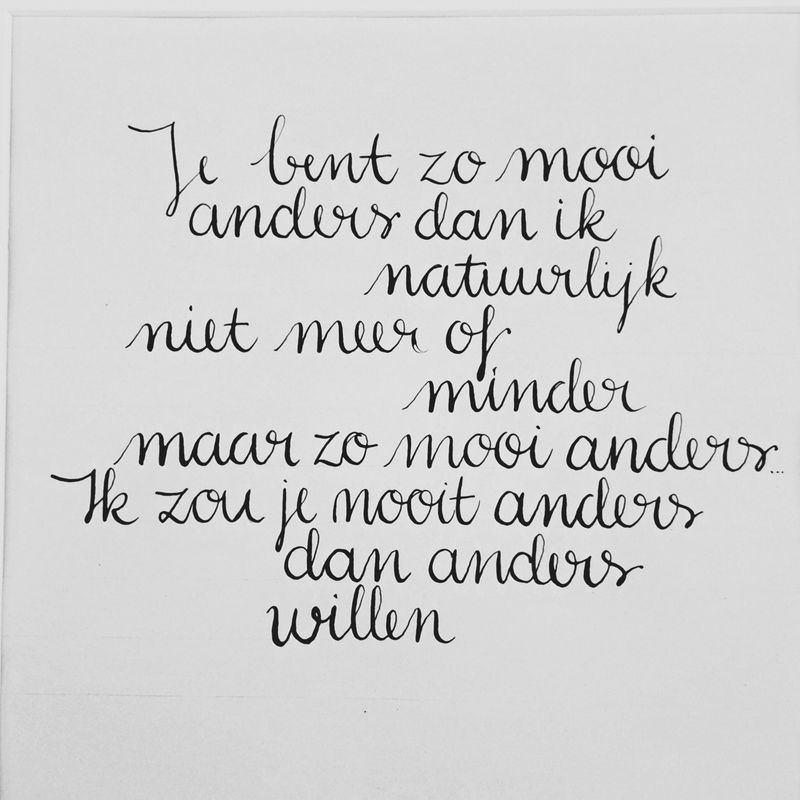 Je bent zo mooi
anders dan ik
natuurlijk
niet meer of
minder
maar zo mooi anders...
Ik zou je nooit anders
dan anders
willen